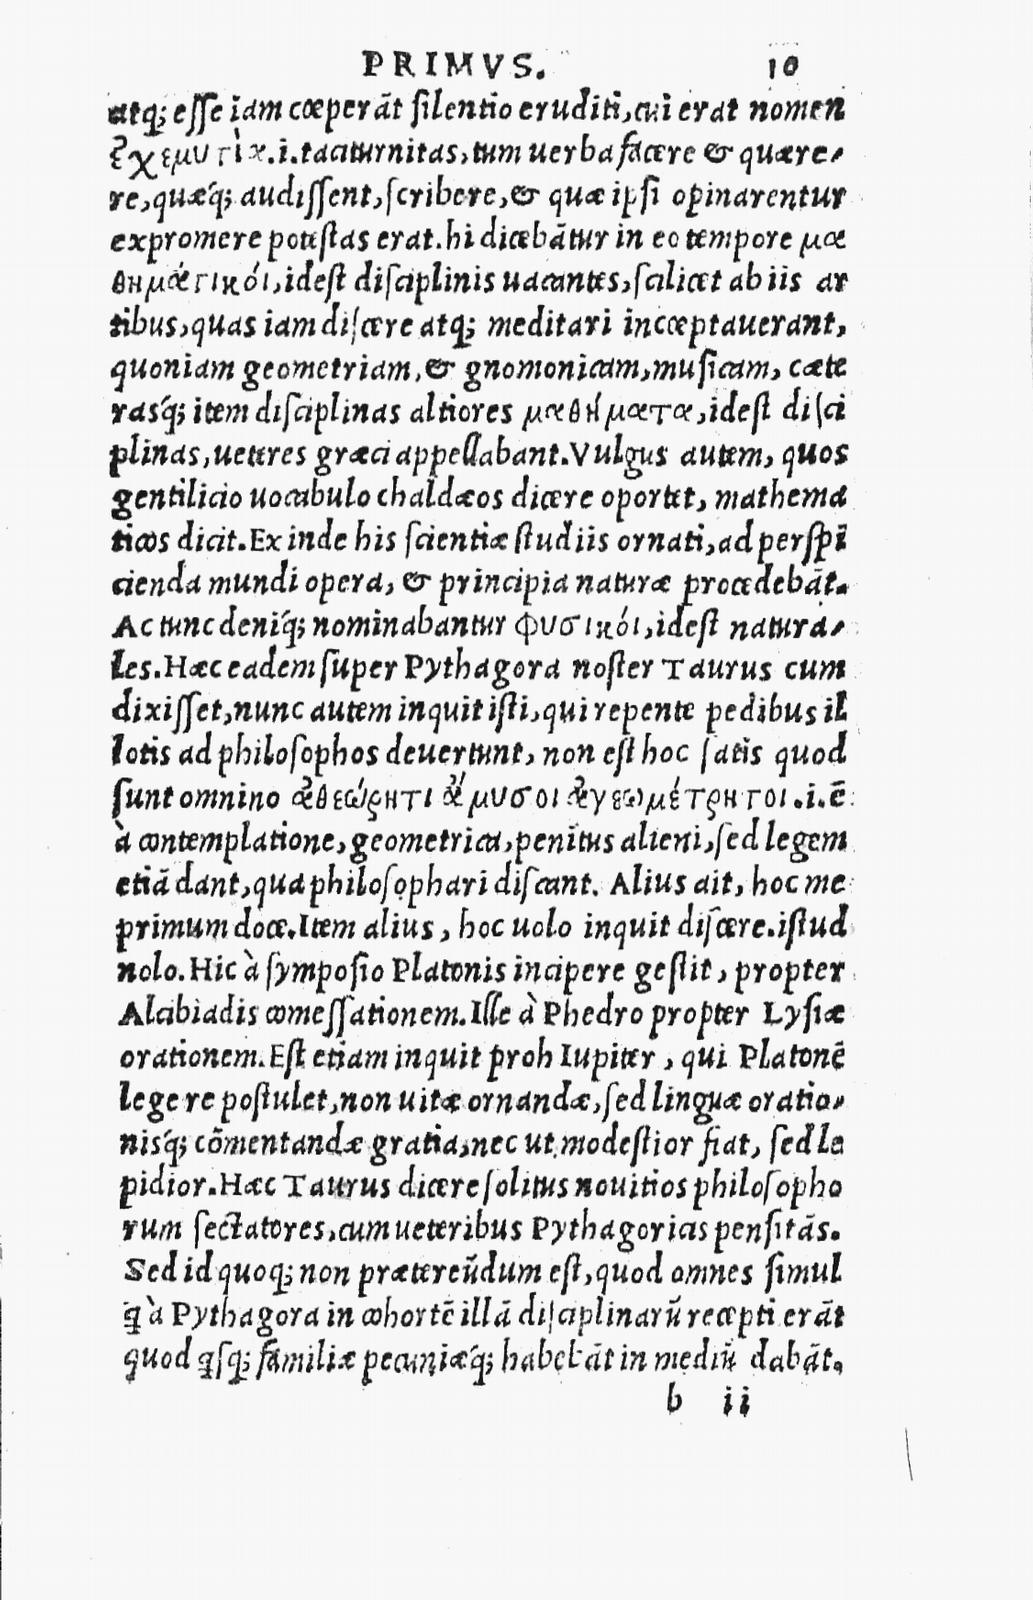 PRIMVS. 10
atq; esse iam cœperãt silentio eruditi, cui erat nomen
ἐχεμυτία .i. taciturnitas, tum uerba facere & quære-
re, quæq́; audissent, scribere, & quæ ipsi opinarentur
expromere potestas erat. hi dicebãtur in eo tempore μα
θημάτικόι, idest disciplinis uacantes, scilicet ab iis ar
tibus, quas iam discere atq; meditari incœptauerant,
quoniam geometriam, & gnomonicam, musicam, cæte
rasq́; item disciplinas altiores μαθήματα, idest disci
plinas, ueteres græci appellabant. Vulgus autem, quos
gentilicio uocabulo chaldæos dicere oportet, mathema
ticos dicit. Ex inde his scientiæ studiis ornati, ad perspi
cienda mundi opera, & principia naturæ procedebãt.
Ac tunc deniq́; nominabantur φυσικόι, idest natura-
les. Hæc eadem super Pythagora noster Taurus cum
dixisset, nunc autem inquit isti, qui repente pedibus il
lotis ad philosophos deuertunt, non est hoc satis quod
sunt omnino ἀθεώρητι ἄμυσοι ἀγεωμέτρητοι .i. ẽ
à contemplatione, geometrica, penitus alieni, sed legem
etiã dant, qua philosophari discant. Alius ait, hoc me
primum doce. Item alius, hoc uolo inquit discere. istud
nolo. Hic à symposio Platonis incipere gestit, propter
Alcibiadis comessationem. Ille à Phedro propter Lysiæ
orationem. Est etiam inquit proh Iupiter, qui Platonẽ
legere postulet, non uitæ ornandæ, sed linguæ oratio-
nisq́; cõmentandæ gratia, nec ut modestior fiat, sed le
pidior. Hæc Taurus dicere solitus nouitios philosopho
rum sectatores, cum ueteribus Pythagoricis pensitãs.
Sed id quoq; non prætereũdum est, quod omnes simul
ꝗ à Pythagora in cohortẽ illã disciplinarũ recepti erãt
quod ꝗsq; familiæ pecuniæq́; habebãt in mediũ dabãt.
b ii